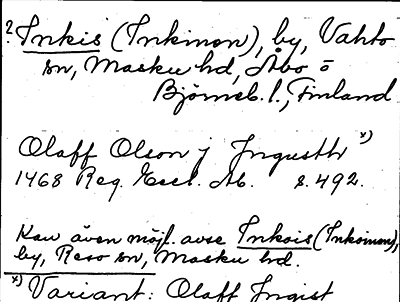 ? Inkis (Inkinen), by, Vahto
sn, Masku hd, Åbo o
Björneb. l., Finland
Olaff Olson j Jngusthr x)
1468 Reg. Eccl. Ab. s. 492.
Kan även möjl. avse Inkois (Inkoinen),
by, Reso sn, Masku hd.
x) Variant: Olaff Jngist